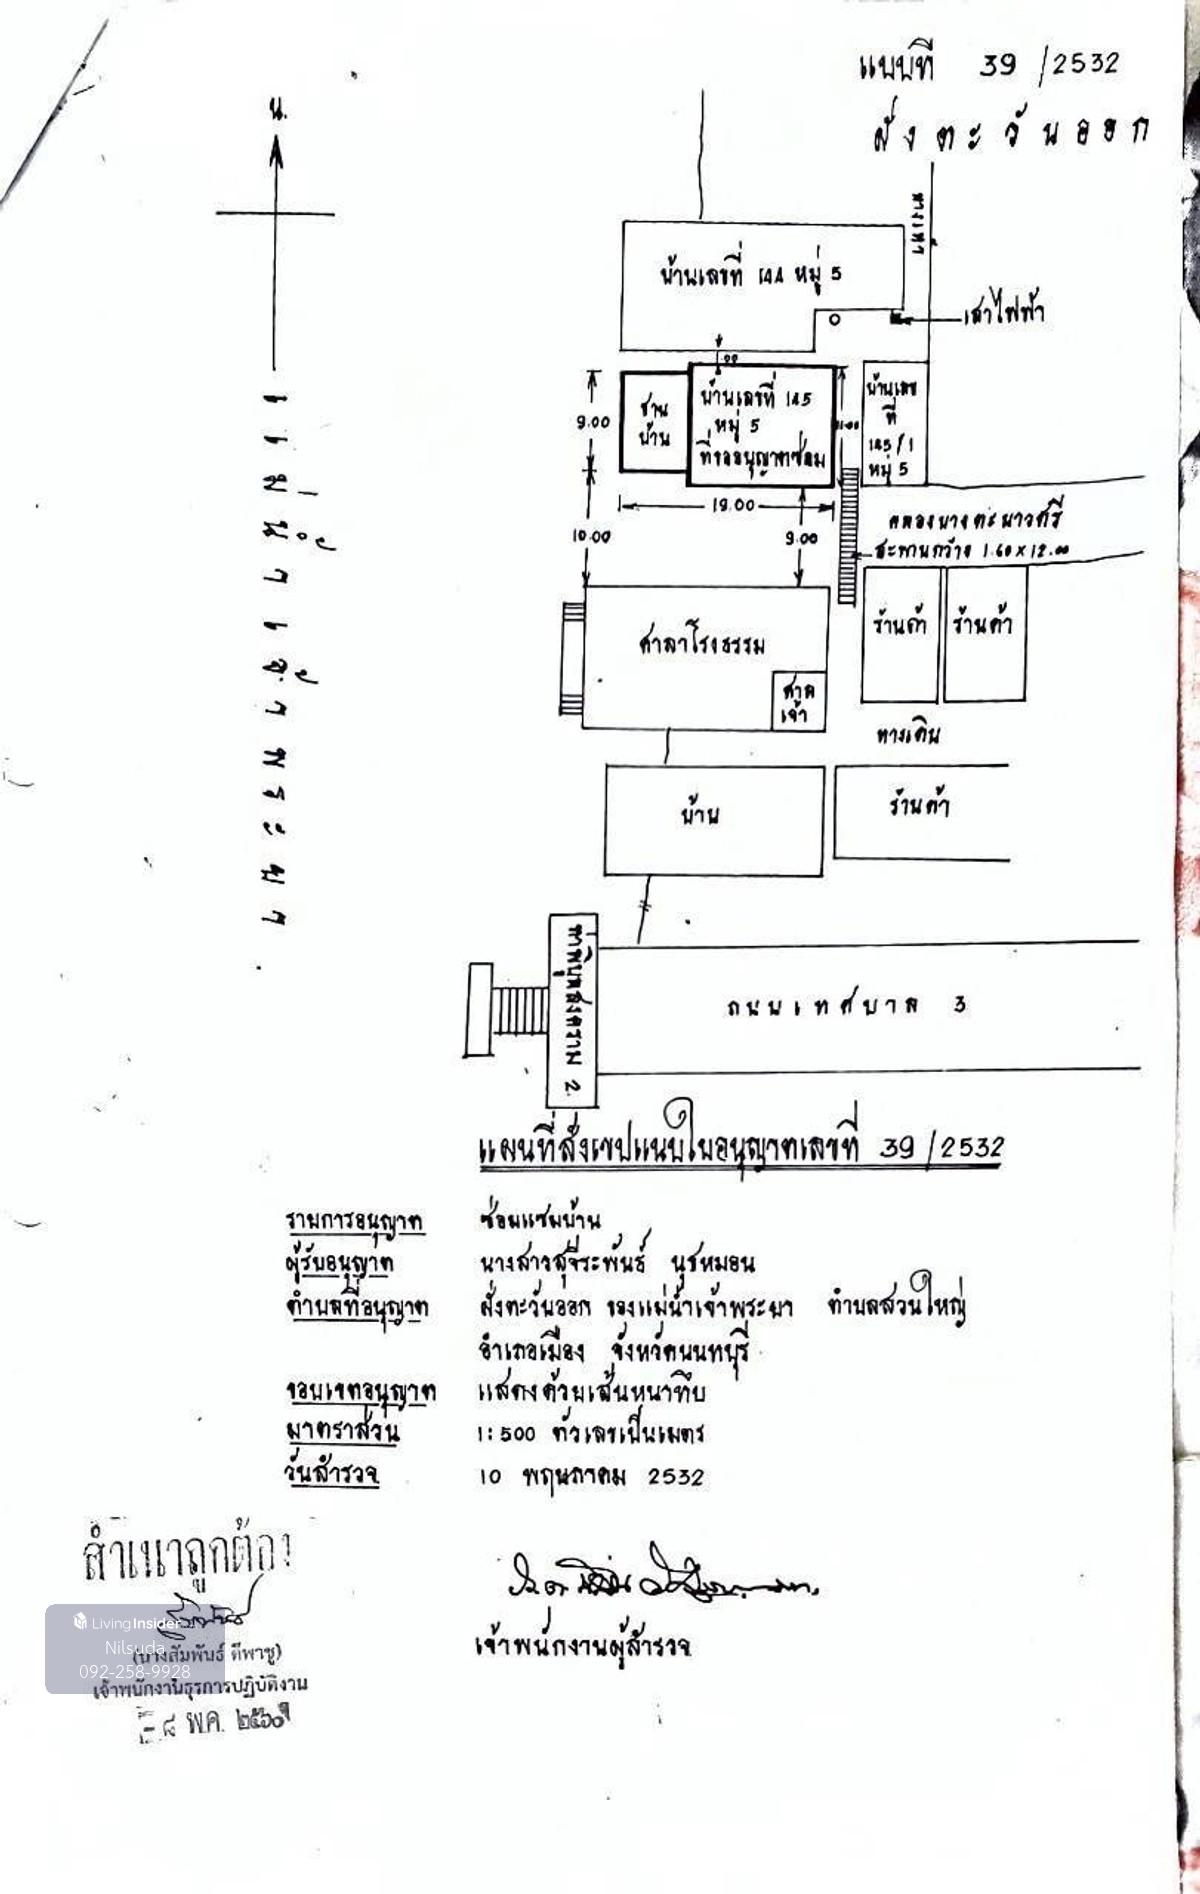 แบบที่ 39/2532
ฝั่งตะวันออก
น.
ทางเท้า
บ้านเลขที่ 144 หมู่ 5
เสาไฟฟ้า
บ้านเลขที่ 145
หมู่ 5
ที่ขออนุญาตซ่อม
ชาน
บ้าน
บ้านเลข
ที่
145/1
หมู่ 5
9.00
19.00
10.00
9.00
คลองบางตะนาวศรี
สะพานกว้าง 1.60 x 12.00
แม่น้ำเจ้าพระยา
ศาลาโรงธรรม
ศาล
เจ้า
ร้านค้า
ร้านค้า
ทางเดิน
บ้าน
ร้านค้า
ท่าพิบูลสงคราม 2
ถนนเทศบาล 3
แผนที่สังเขปแนบใบอนุญาตเลขที่ 39/2532
รายการอนุญาต ซ่อมแซมบ้าน
ผู้รับอนุญาต นางสาวสุจีระพันธ์ นุชหมอน
ตำบลที่อนุญาต ฝั่งตะวันออก ของแม่น้ำเจ้าพระยา ตำบลสวนใหญ่
อำเภอเมือง จังหวัดนนทบุรี
ขอบเขตอนุญาต แสดงด้วยเส้นหนาทึบ
มาตราส่วน 1:500 ตัวเลขเป็นเมตร
วันสำรวจ 10 พฤษภาคม 2532
เจ้าพนักงานผู้สำรวจ
สำเนาถูกต้อง
LivingInsider
Nilsuda
(นางสัมพันธ์ ดีพาชู)
092-258-9928
เจ้าพนักงานธุรการปฏิบัติงาน
๘ พ.ค. ๒๕๖๐